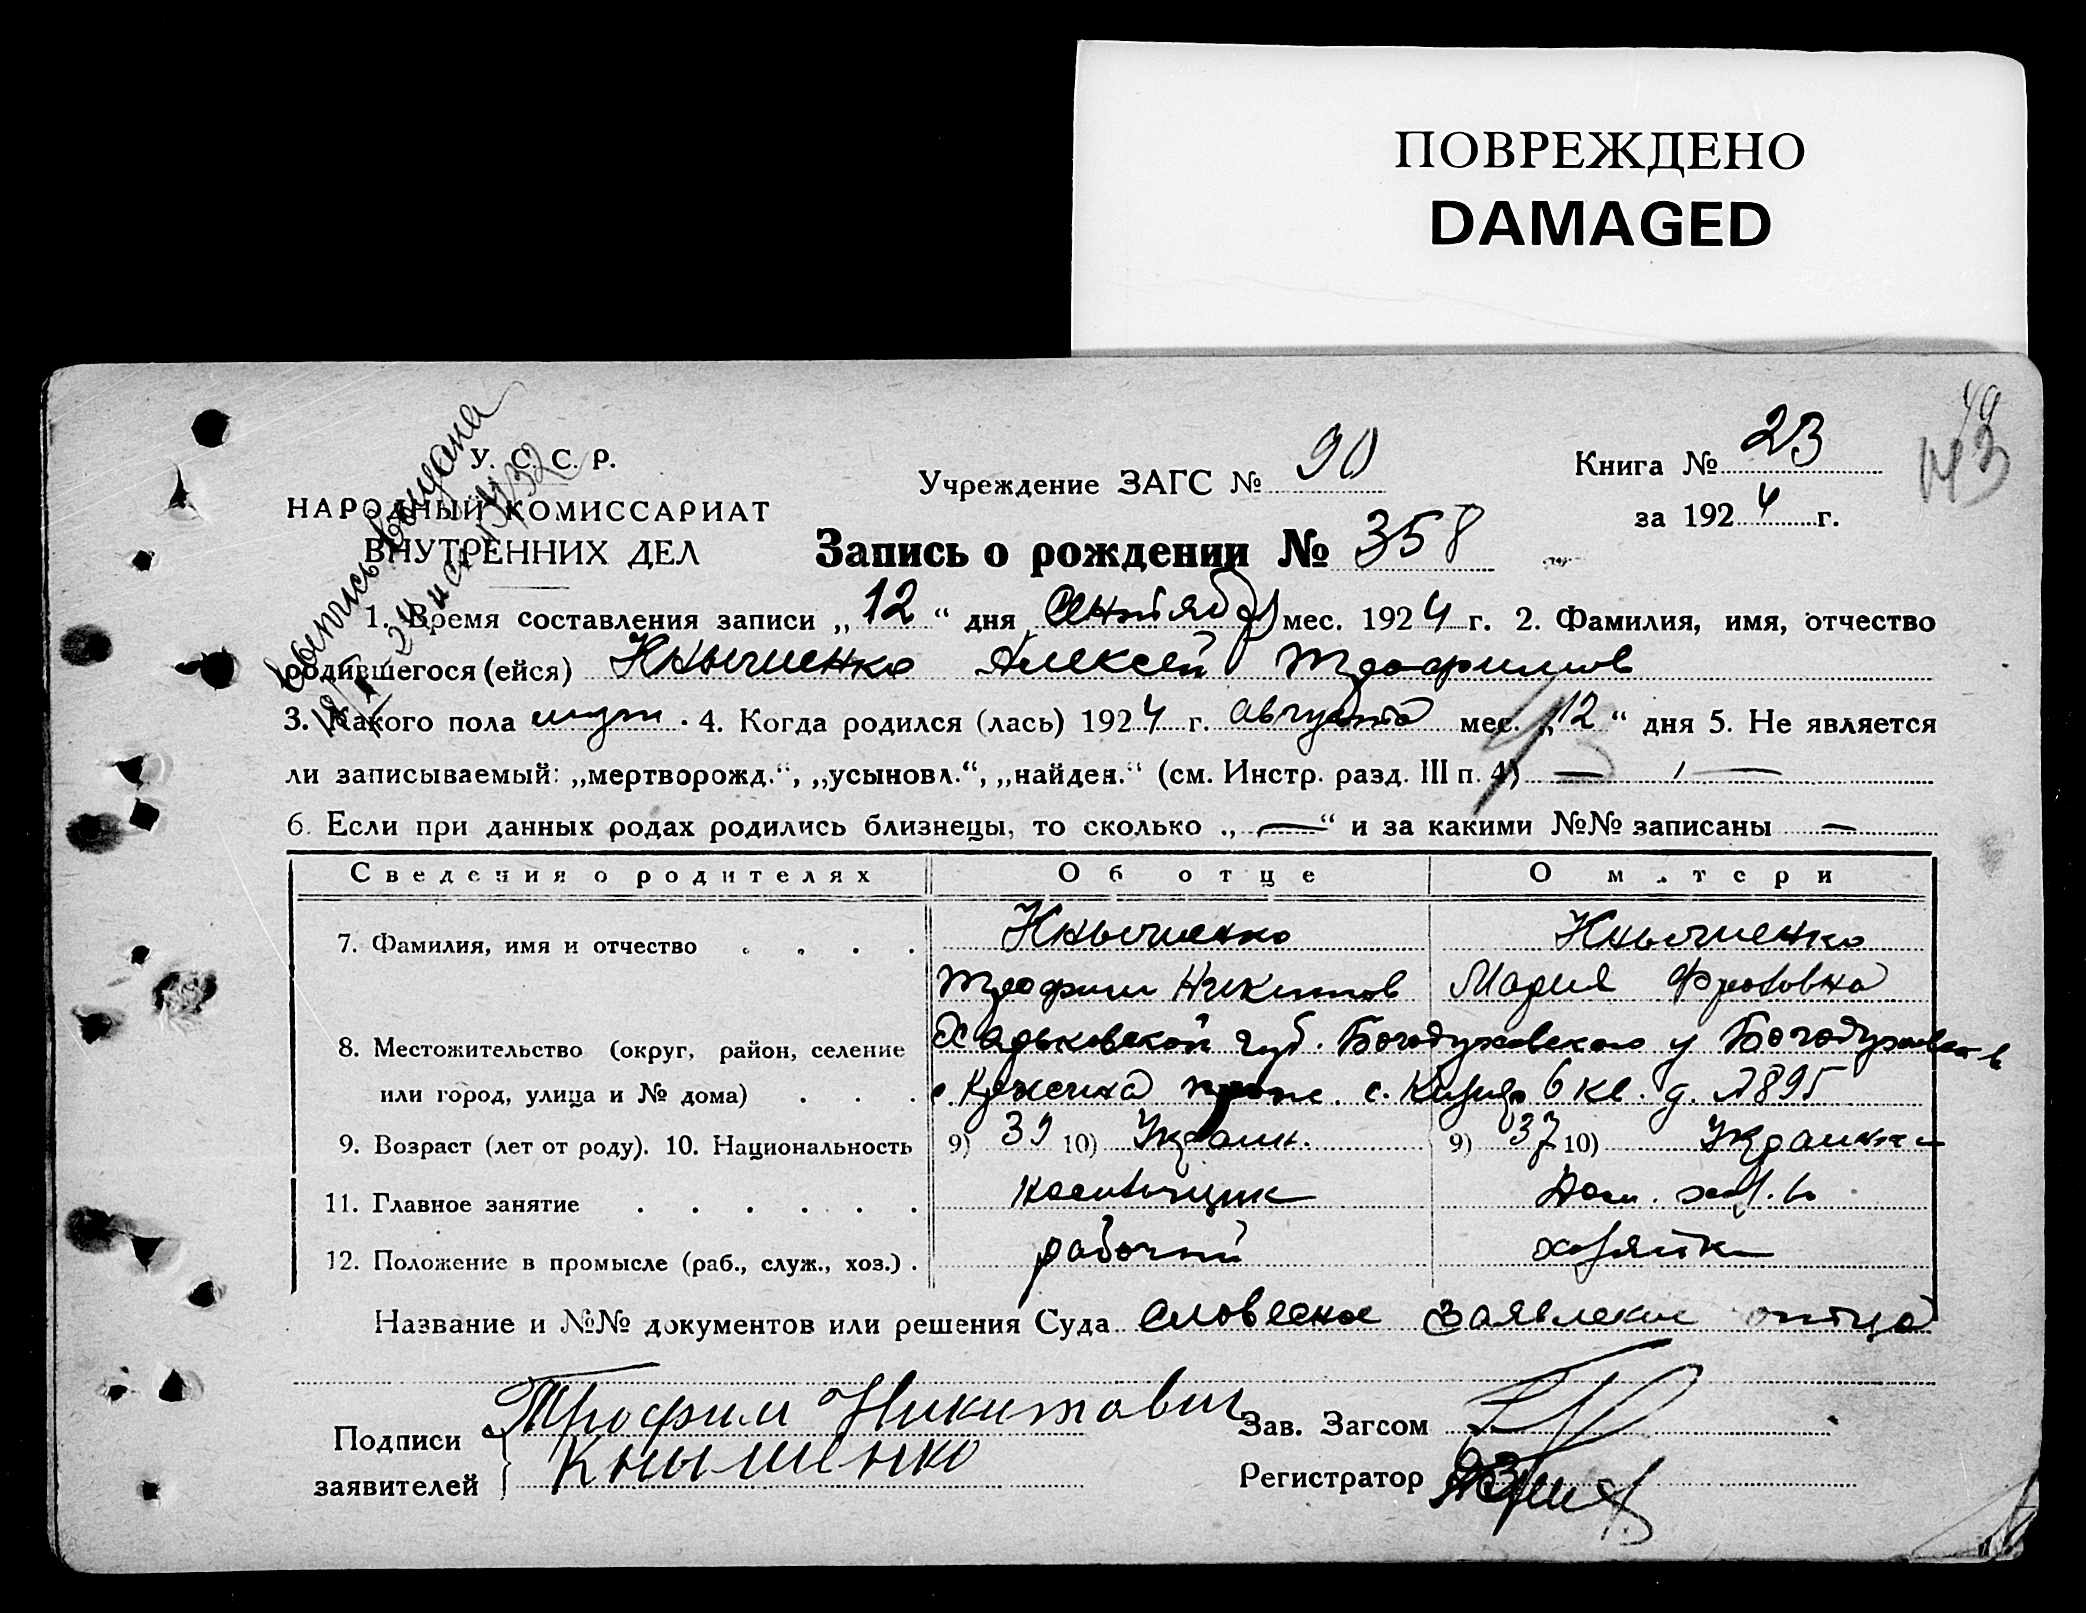 ПОВРЕЖДЕНО
DAMAGED
49
143
Выпись выдана
У. С. С. Р.
НАРОДНЫЙ КОМИССАРИАТ
ВНУТРЕННИХ ДЕЛ
Учреждение ЗАГС № 90
Книга № 23
за 1924 г.
Запись о рождении № 358
1. Время составления записи „12“ дня Сентября мес. 1924 г. 2. Фамилия, имя, отчество
родившегося (ейся) Кнышенко Алексей Трофимов
3. Какого пола муж. 4. Когда родился (лась) 1924 г. августа мес. „12“ дня 5. Не является
ли записываемый: „мертворожд.“, „усыновл.“, „найден.“ (см. Инстр. разд. III п. 4) —
6. Если при данных родах родились близнецы, то сколько „—“ и за какими №№ записаны —
Сведения о родителях Об отце О м.тери
7. Фамилия, имя и отчество Кнышенко Кнышенко
Трофим Никитов Мария
8. Местожительство (округ, район, селение Харьковской губ. Богодуховского у
или город, улица и № дома) 6 кв. д. №895
9. Возраст (лет от роду). 10. Национальность 9) 39 10) Украин. 9) 37 10) Украинка
11. Главное занятие Дом. хоз.
12. Положение в промысле (раб., служ., хоз.) рабочий хозяйка
Название и №№ документов или решения Суда словесное заявление отца
Подписи Трофим Никитович Зав. Загсом
заявителей Кнышенко Регистратор